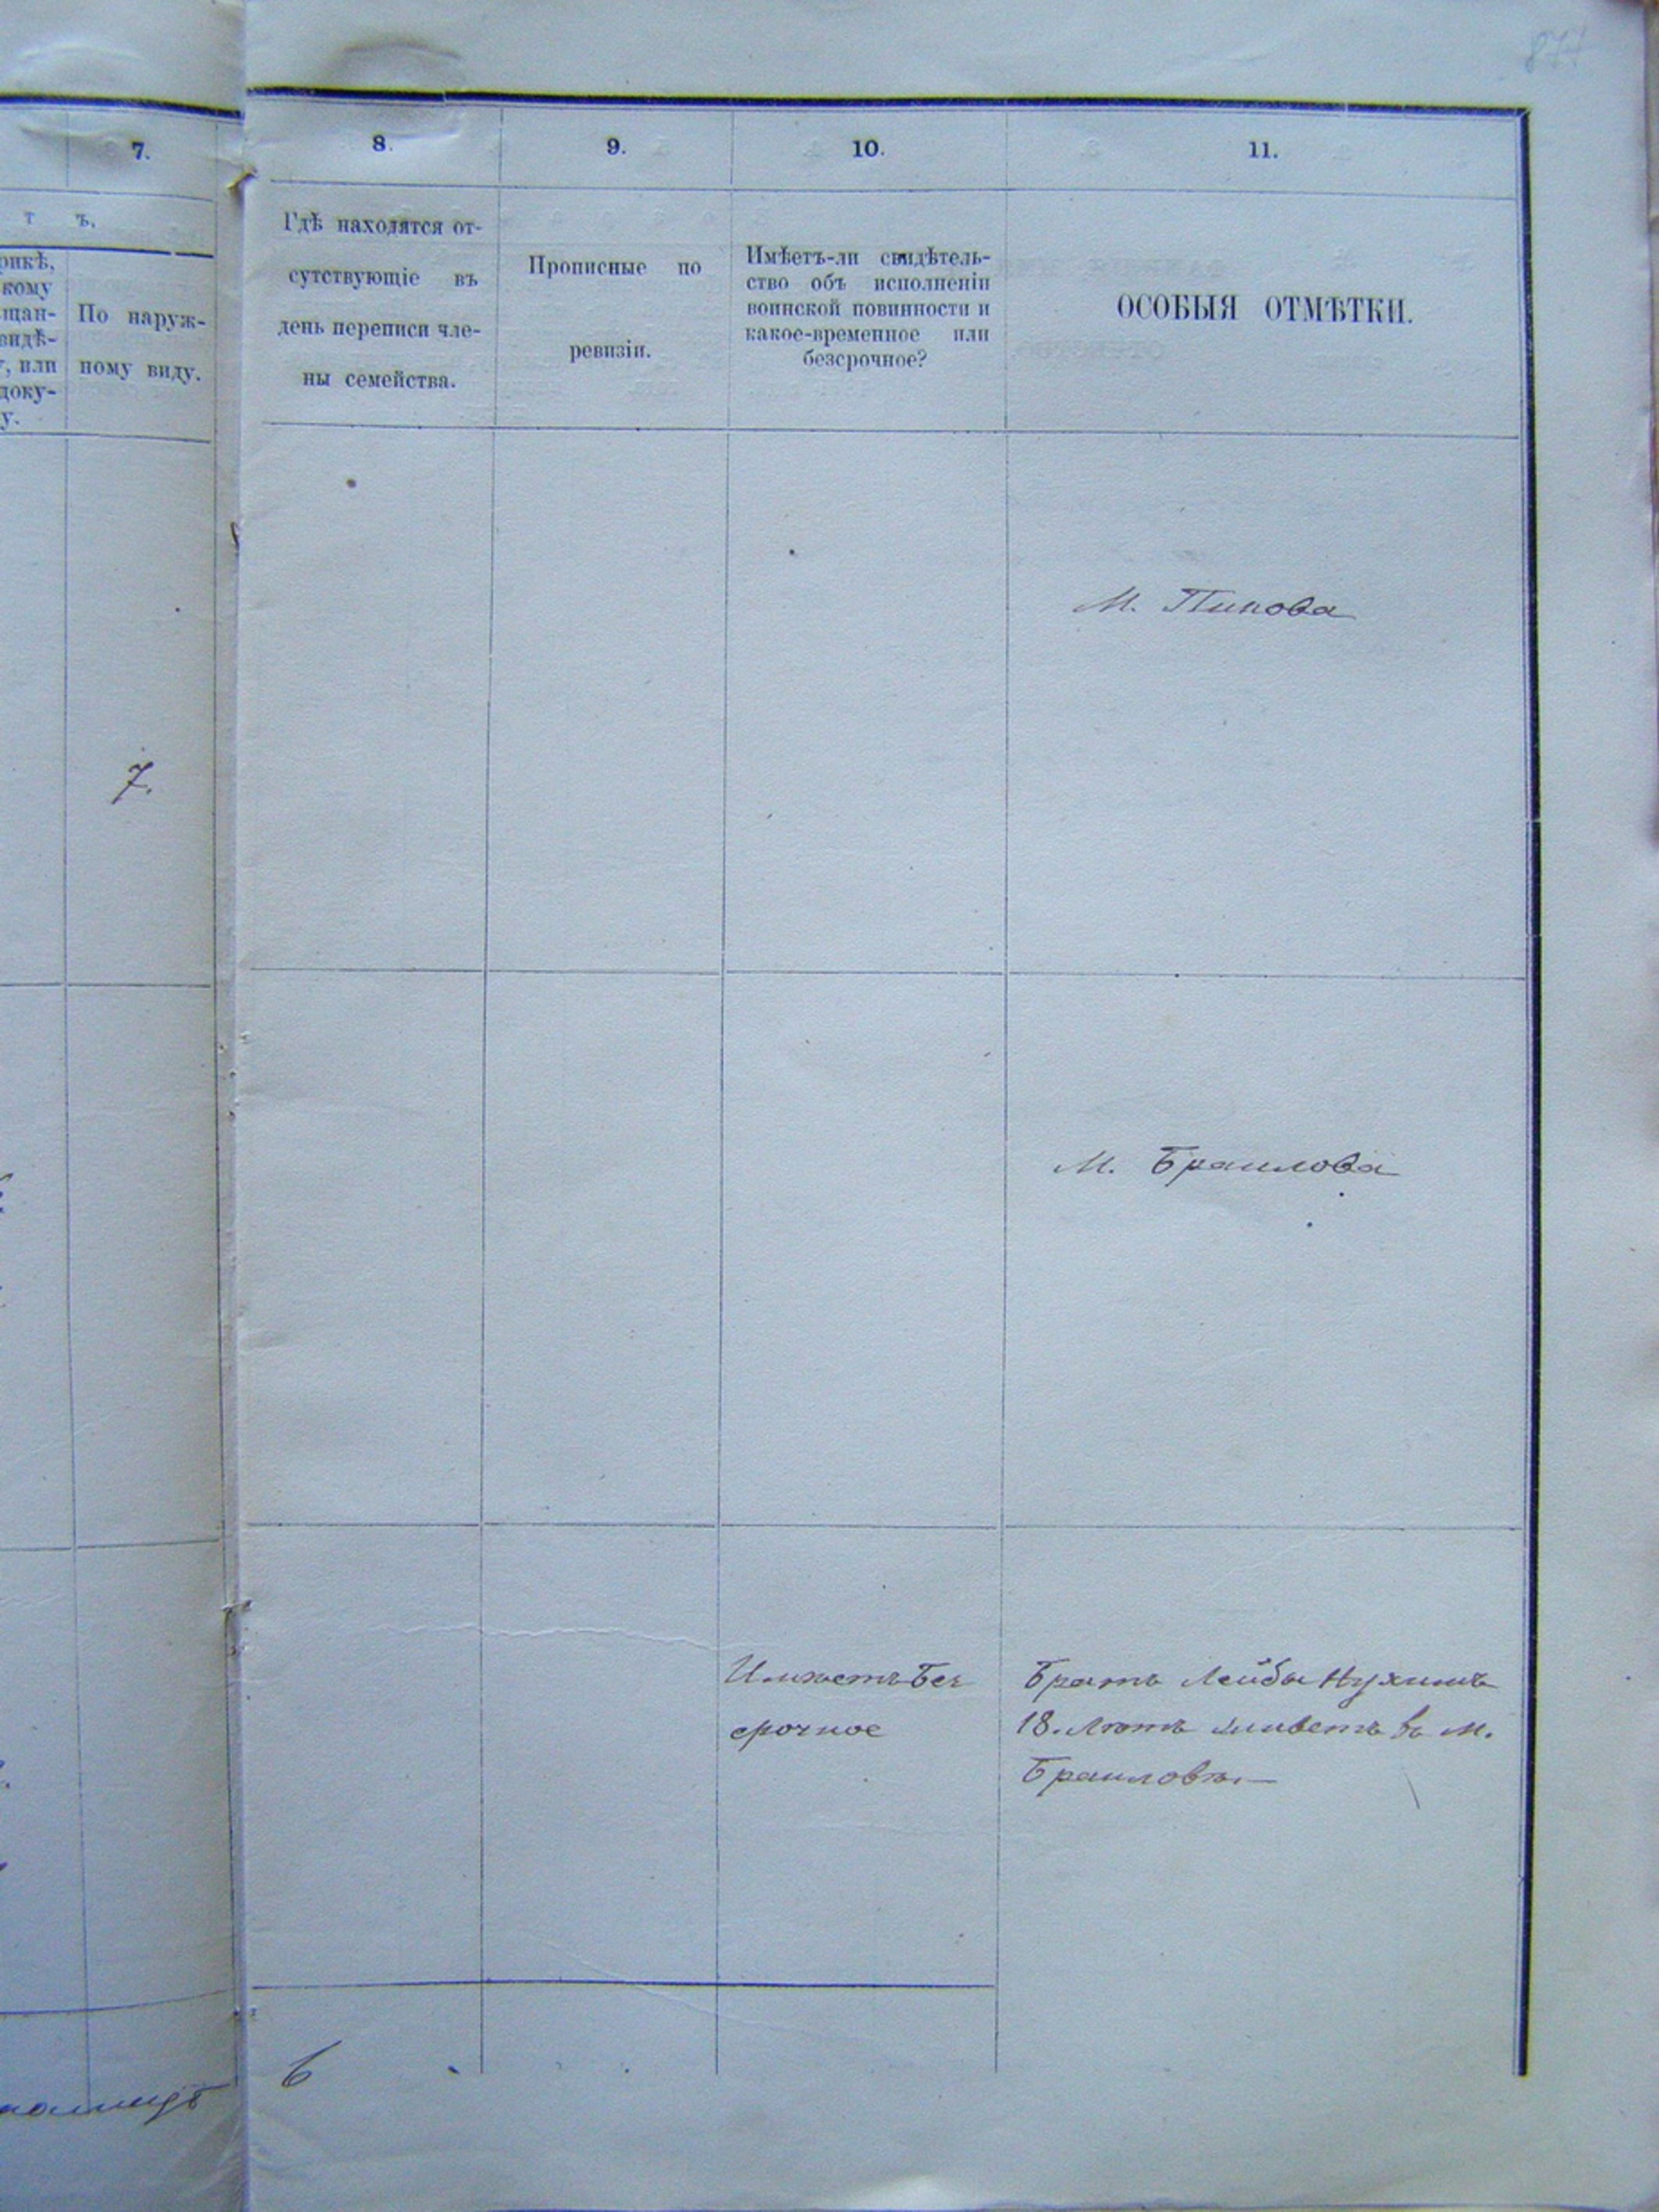 877
7.
8.
9.
10.
11.
т ъ.
рикѣ,
кому
щан-
видѣ-
, или
доку-
у.
По наруж-
ному виду.
Гдѣ находятся от-
сутствующіе въ
день переписи чле-
ны семейства.
Прописные по
ревизіи.
Имѣетъ-ли свидѣтель-
ство объ исполненіи
воинской повинности и
какое-временное или
безсрочное?
ОСОБЫЯ ОТМѢТКИ.
М. Пикова
7.
М. Браилова
Имѣетъ Без
срочное
Братъ Лейбы Нухимъ
18. лѣтъ живетъ въ м.
Браиловѣ.—
6